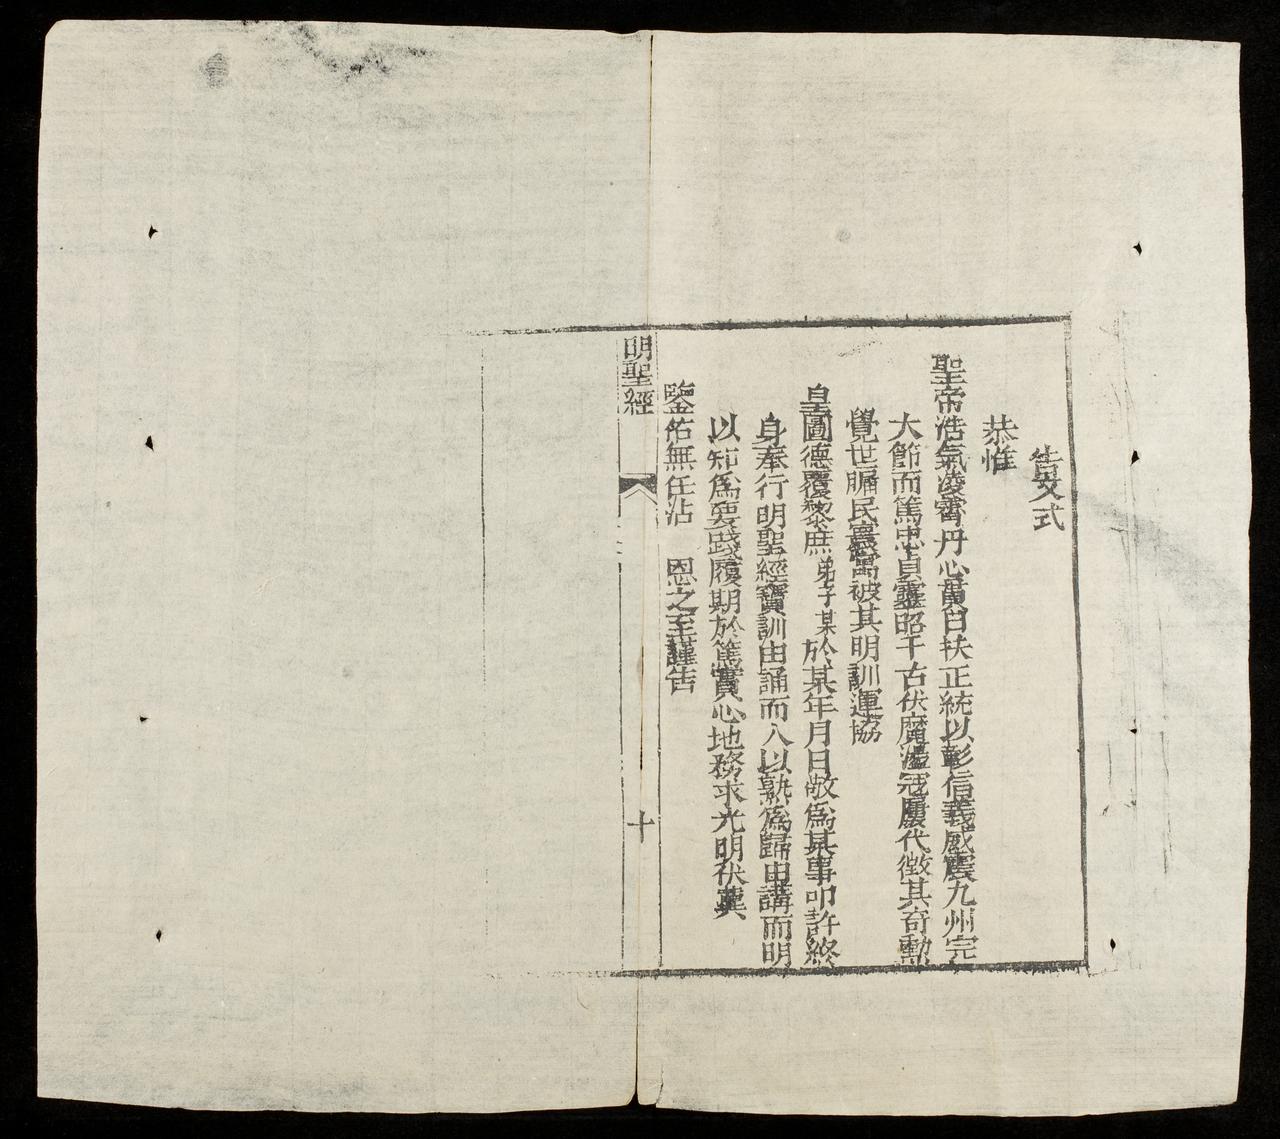 告文式
恭惟
聖帝浩氣凌霄丹心貫日扶正統以彰信義威震九州完
大節而篤忠貞靈昭千古伏魔盪寇屢代徵其奇勳
覺世牖民寰區被其明訓運協
皇圖德覆黎庶弟子某於某年月日敬為某事叩許終
身奉行明聖經寶訓由誦而入以熟為歸由講而明
以知為要踐履期於篤實心地務求光明伏冀
鑒佑無任沾　恩之至謹告
明聖經
十